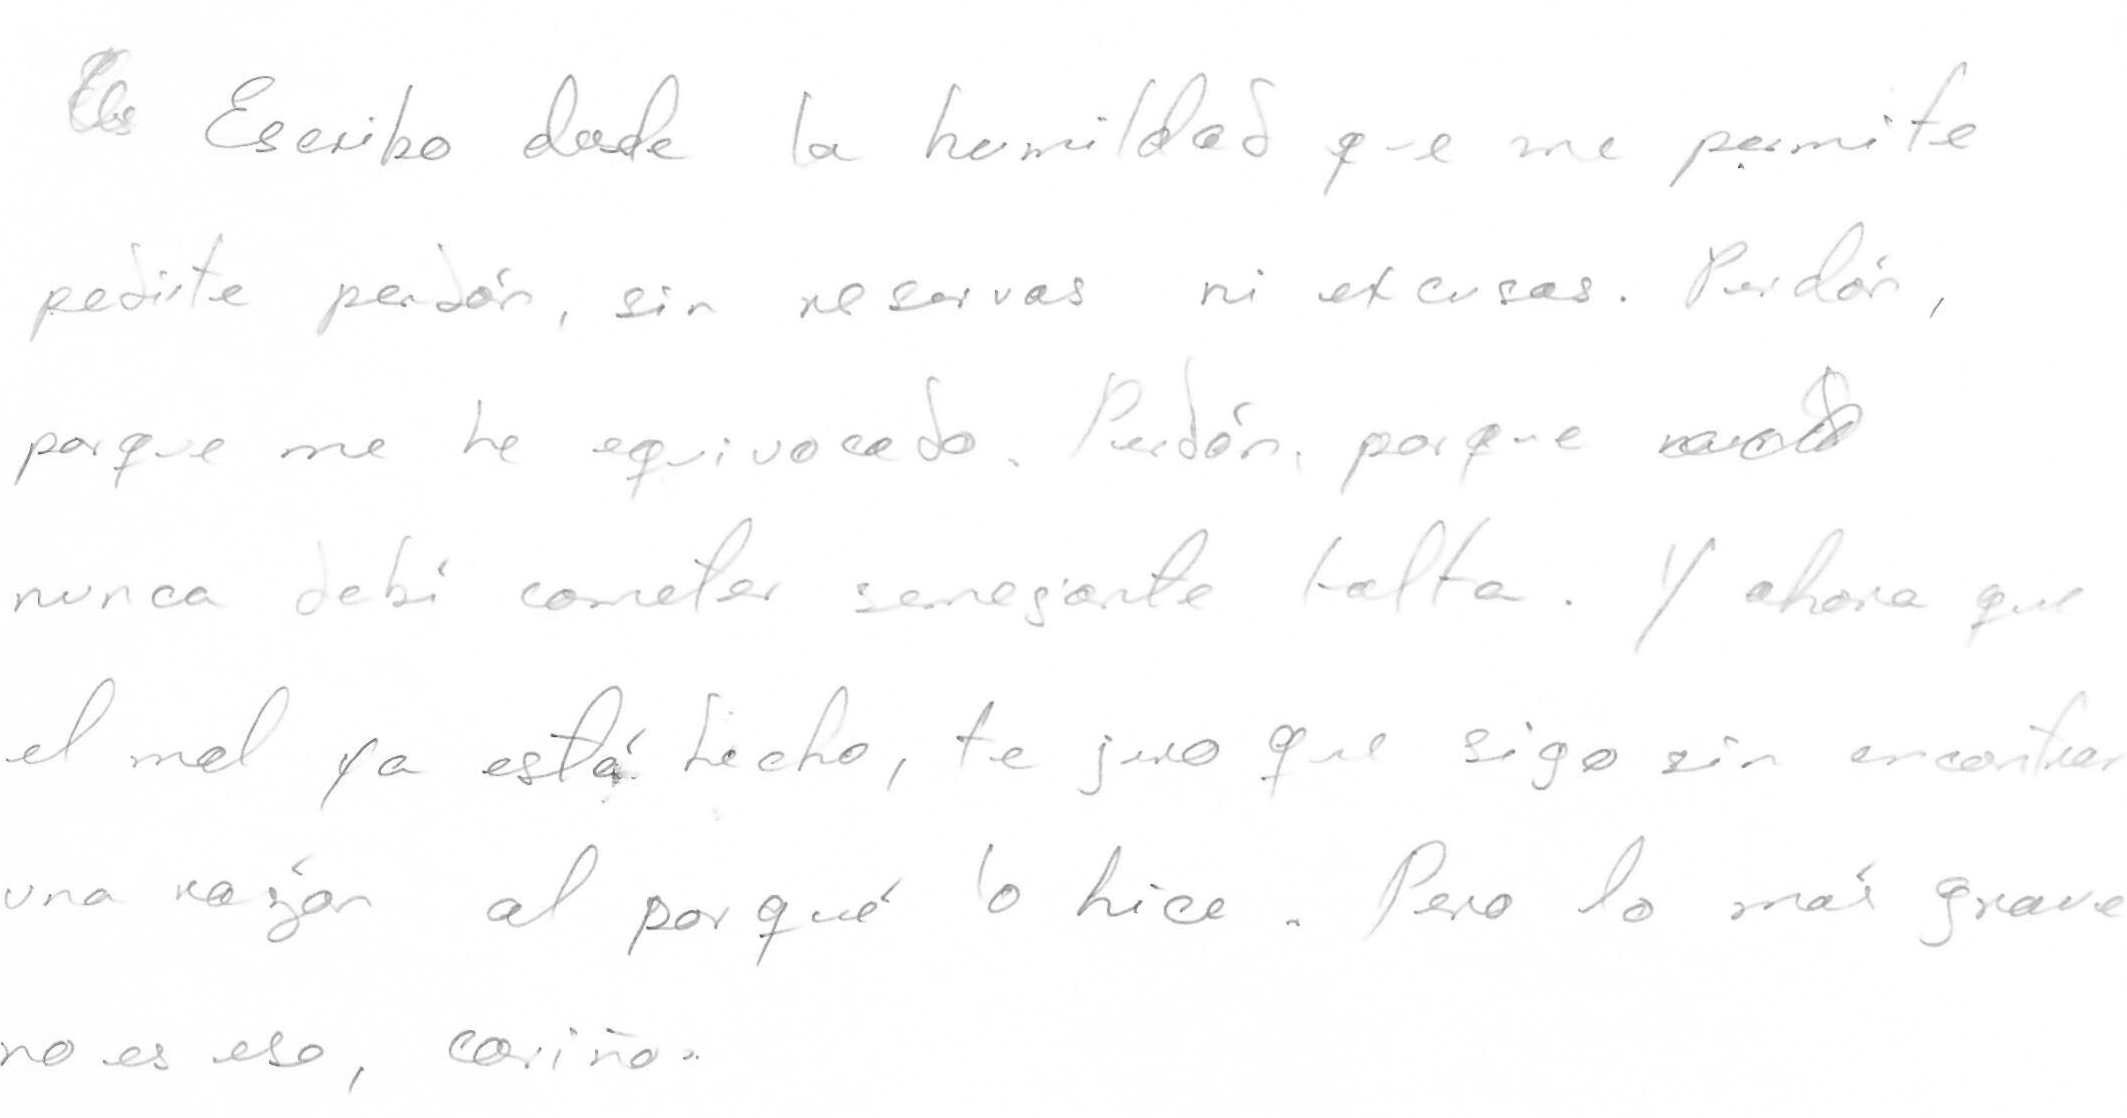 Escribo desde la humildad que me permite
pedirte perdón, sin reservas ni excusas. Perdón,
porque me he equivocado. Perdón, porque
nunca debí cometer semejante falta. Y ahora que
el mal ya está hecho, te juro que sigo sin encontrar
una razón al porqué lo hice. Pero lo más grave
no es eso, cariño.